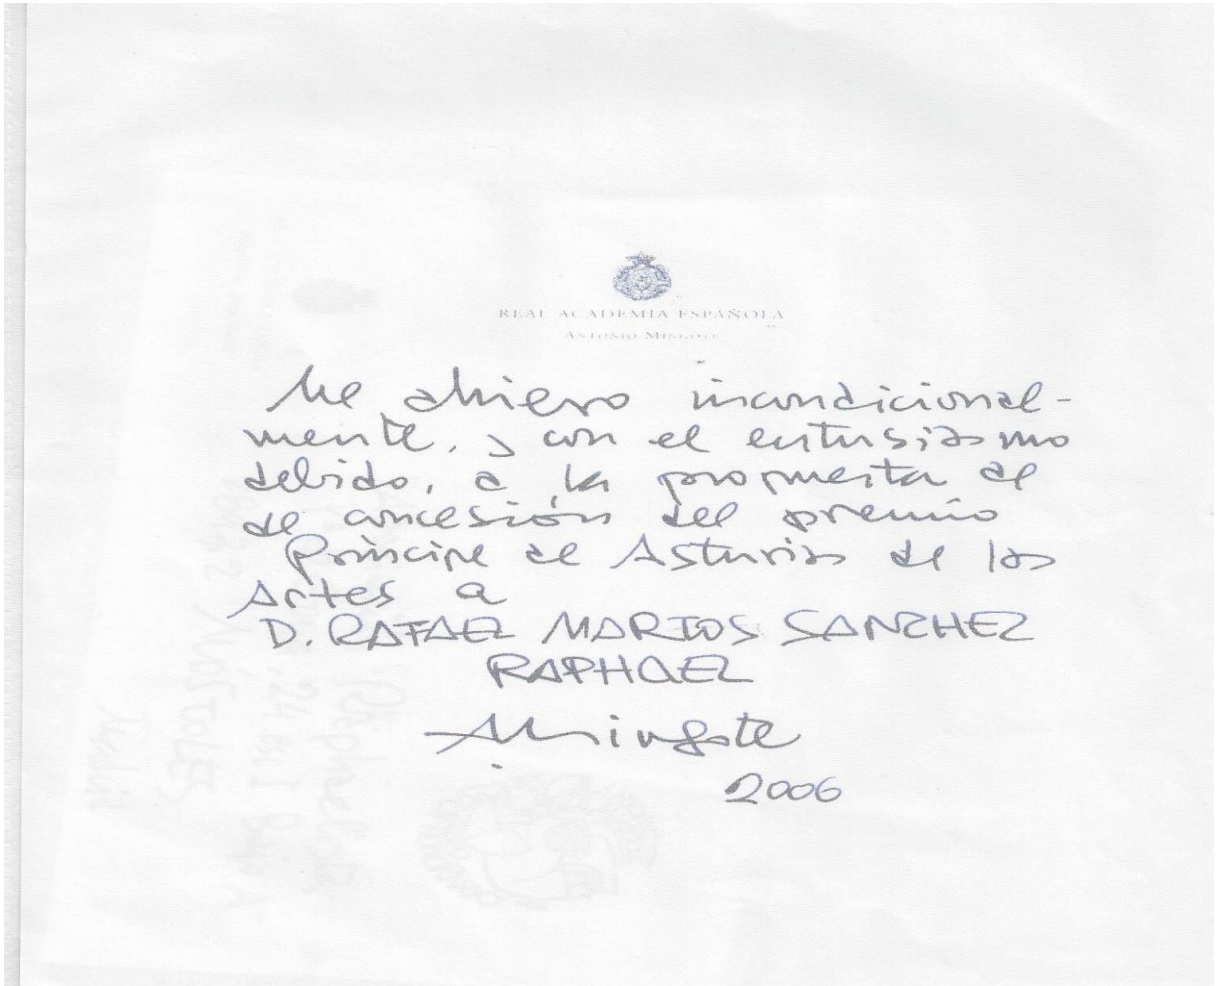 REAL ACADEMIA ESPAÑOLA
ANTONIO MINGOTE
Me adhiero incondicional-
mente, y con el entusiasmo
debido, a la propuesta de
de concesión del premio
Príncipe de Asturias de las
Artes a
D. RAFAEL MARTOS SANCHEZ
RAPHAEL
Mingote
2006